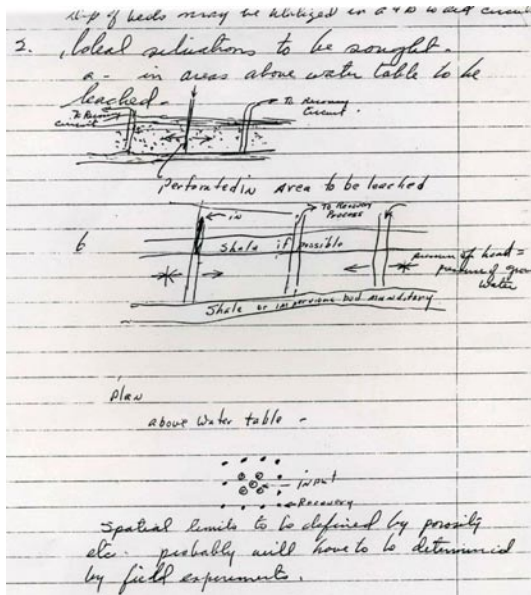 dip of beds may be utilized in a & b to aid circuit
2. Ideal situations to be sought.
a - in areas above water table to be
leached.
To Recovery
Circuit
To Recovery
Circuit.
Perforated in Area to be leached
6
in
To Recovery
Process
Shale if possible
pressure of head =
pressure of ground
water
Shale or impervious bed mandatory
Plan
above Water table -
INPUT
RECOVERY
Spatial limits to be defined by porosity
etc. probably will have to be determined
by field experiments.